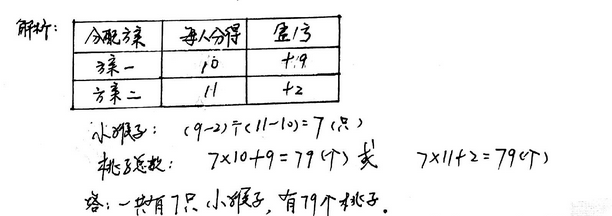 解析:
分配方案 每人分得 盈/亏
方案一 10 +9
方案二 11 +2
小猴子: (9-2)÷(11-10)=7(只)
桃子总数: 7×10+9=79(个) 或 7×11+2=79(个)
答:一共有7只小猴子,有79个桃子。